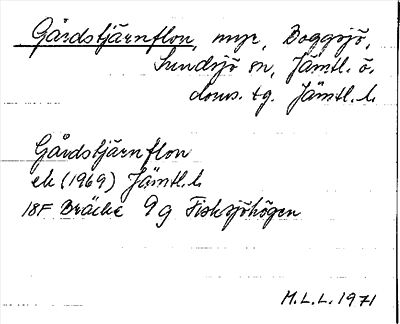 Gårdstjärnflon, myr, Boggsjö,
Sundsjö sn, Jämtl. ö.
doms. tg. Jämtl. l.
Gårdstjärnflon
ek (1969) Jämtl. l
18F Bräcke 9g Fisksjöhögen
M.L.L. 1971